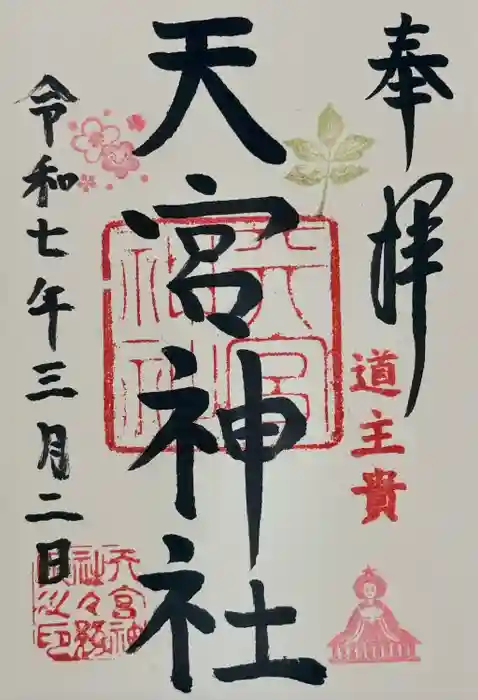 奉拝
道主貴
天宮神社
天宮神社
令和七年三月二日
天宮神
社々務
所之印